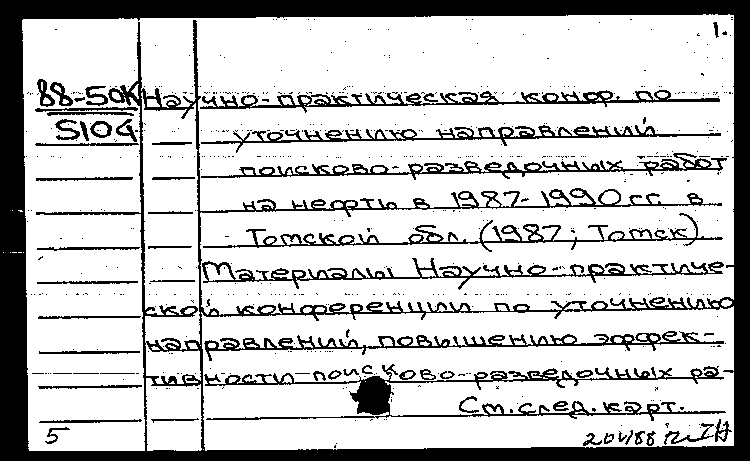 1.
88-50К Научно-практическая конф. по
5104 уточнению направлений
поисково-разведочных работ
на нефть в 1987-1990 гг. в
Томской обл. (1987; Томск)
Материалы Научно-практиче-
ской конференции по уточнению
направлений, повышению эффек-
тивности поисково-разведочных ра-
См. след. карт.
5